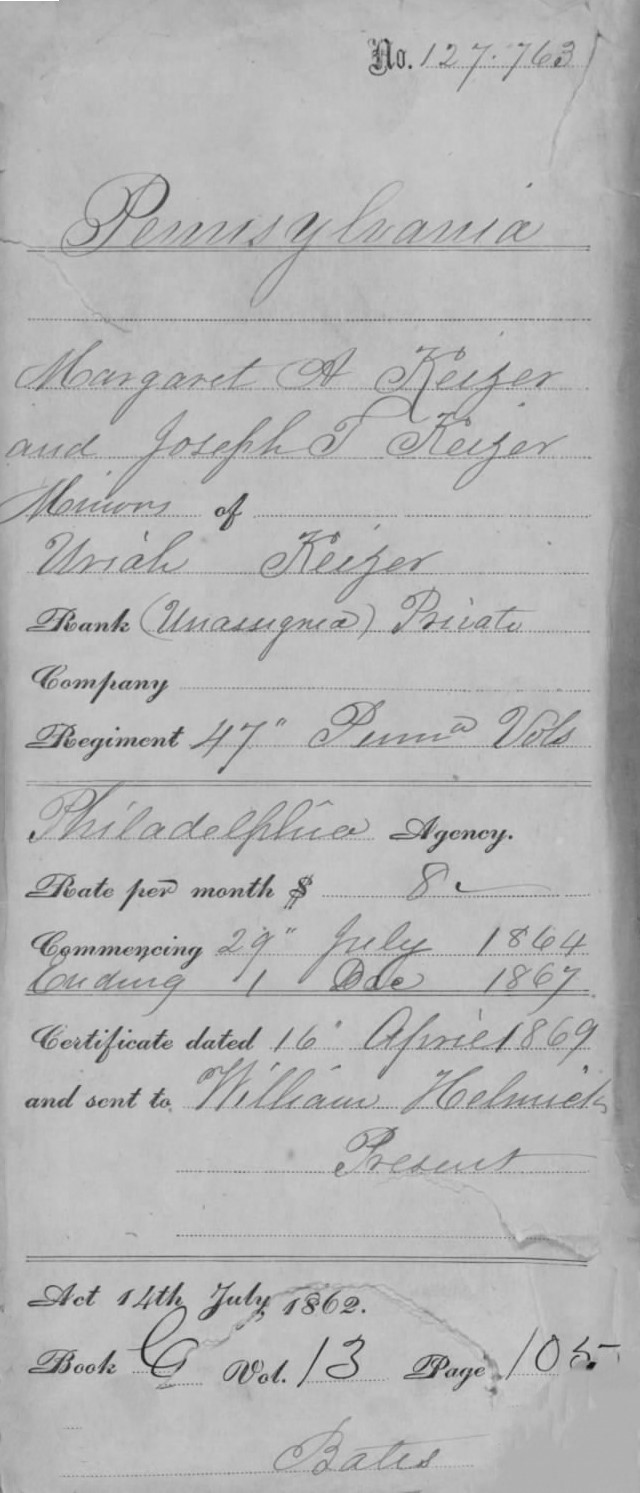 No. 127.763
Pennsylvania
Margaret A Keizer
and Joseph T Keizer
Minors of
Uriah Keizer
Rank (Unassigned) Private
Company
Regiment 47" Penna Vols
Philadelphia Agency.
Rate per month $ 8
Commencing 29" July 1864
Ending 1 Dec 1867
Certificate dated 16" April 1869
and sent to William Helmick
Present
Act 14th July, 1862.
Book G Vol. 13 Page 105
Bates